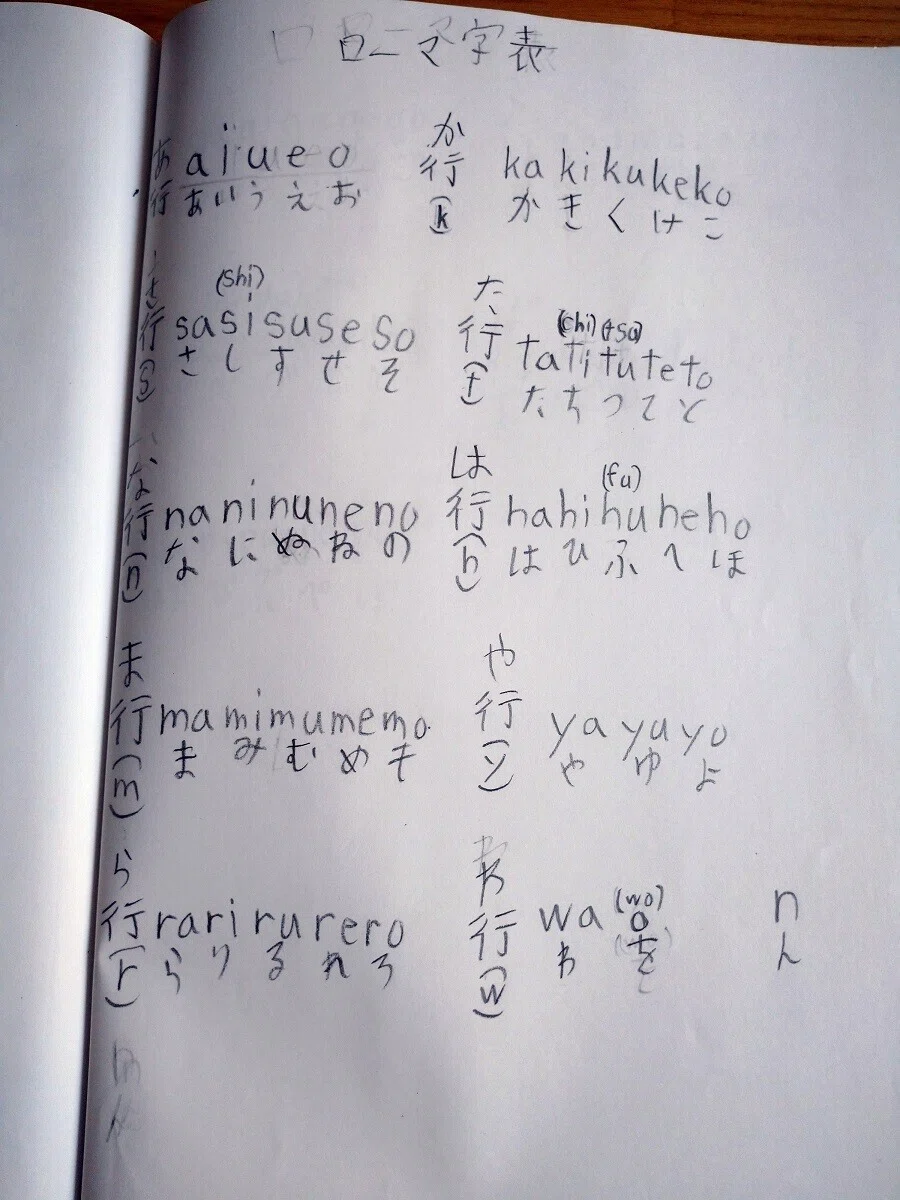 ローマ字表
あ行 a i u e o
あ い う え お
か行(k) ka ki ku ke ko
か き く け こ
(shi)
さ行(s) sa si su se so
さ し す せ そ
(chi) (tsu)
た行(t) ta ti tu te to
た ち つ て と
な行(n) na ni nu ne no
な に ぬ ね の
(fu)
は行(h) ha hi hu he ho
は ひ ふ へ ほ
ま行(m) ma mi mu me mo
ま み む め も
や行(y) ya yu yo
や ゆ よ
ら行(r) ra ri ru re ro
ら り る れ ろ
(wo)
わ行(w) wa o n
わ を ん